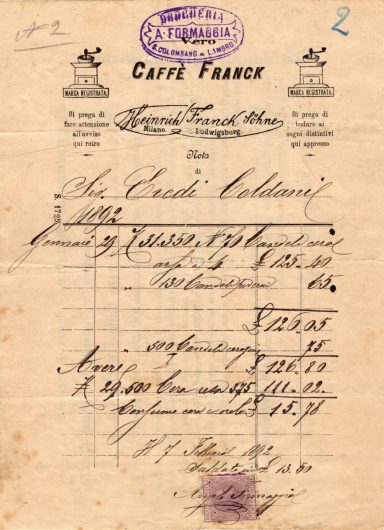 N 2
2
DROGHERIA
A. FORMAGGIA
S. COLOMBANO AL LAMBRO
Vero
CAFFÈ FRANCK
MARCA REGISTRATA.
MARCA REGISTRATA.
Si prega di
fare attenzione
all'avviso
qui retro
Heinrich Franck Söhne
Milano. Ludwigsburg.
Si prega di
badare ai
segni distintivi
qui appresso
Nota
di
Sig. Eredi Coldani
1892
Gennaio 29 K 31.350 N 70 Candele
a £ 125 40
" 130 65
£ 126.05
" 500 Candele 75
Avere £ 126.80
K 29.500 Cera resa 111.02
Consumo cera £ 15.78
Il 7 Febbraio 1892
Saldato in £ 15.50
Formaggia